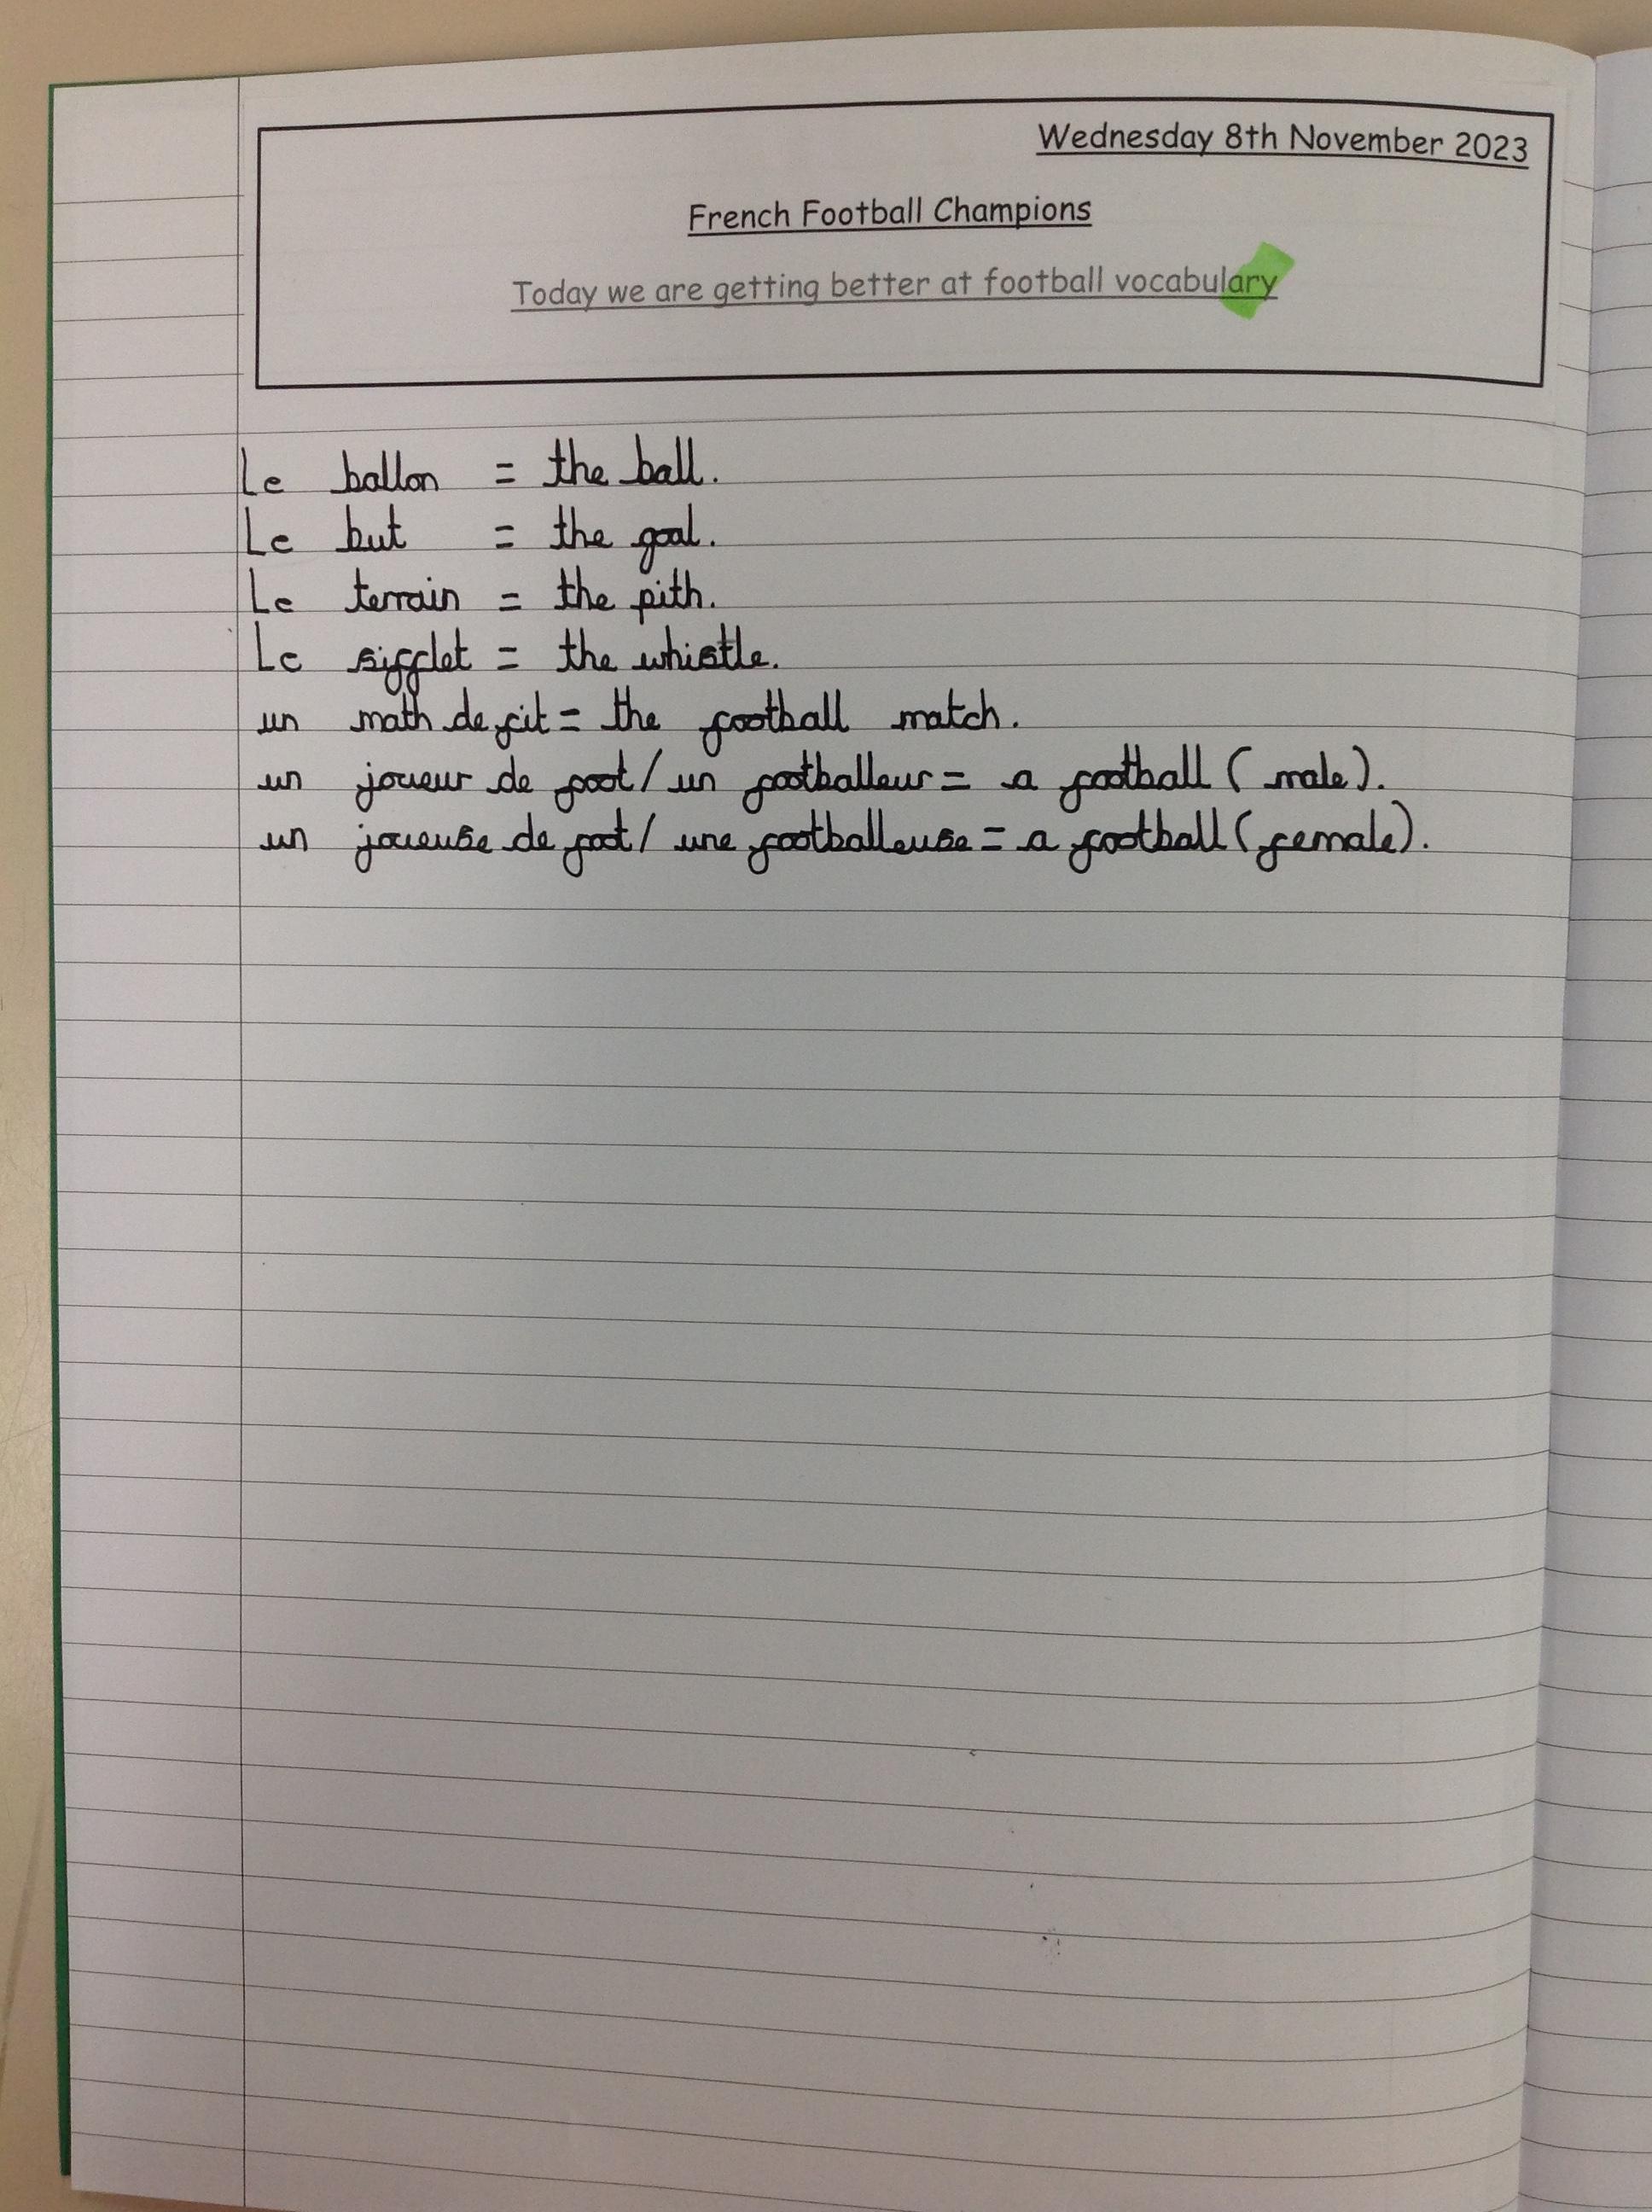 Wednesday 8th November 2023
French Football Champions
Today we are getting better at football vocabulary
Le ballon = the ball.
Le but = the goal.
Le terrain = the pith.
Le sifflet = the whistle.
un math de fit = the football match.
un joueur de foot / un footballeur = a football ( male ).
un joueuse de foot / une footballeuse = a football ( female ).